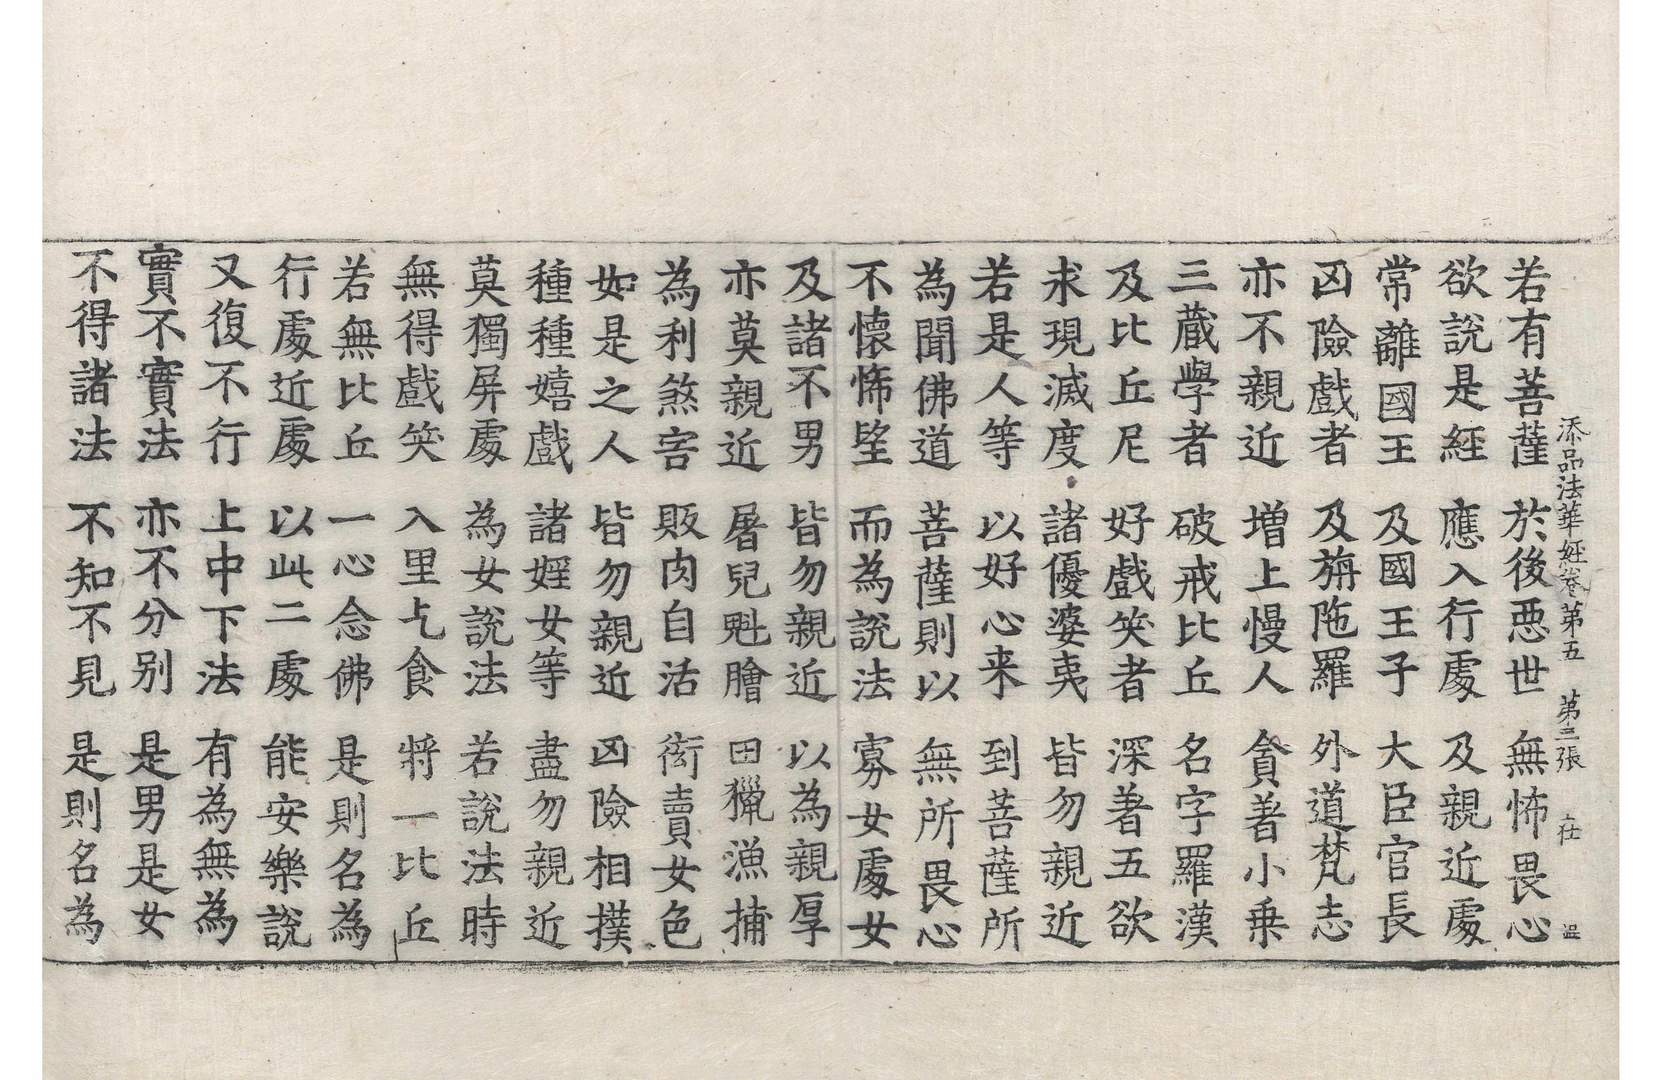 添品法華經卷第五 第三張 仕
若有菩薩 於後惡世 無怖畏心
欲說是經 應入行處 及親近處
常離國王 及國王子 大臣官長
凶險戲者 及旃陁羅 外道梵志
亦不親近 增上慢人 貪著小乗
三藏學者 破戒比丘 名字羅漢
及比丘尼 好戲笑者 深著五欲
求現滅度 諸優婆夷 皆勿親近
若是人等 以好心来 到菩薩所
為聞佛道 菩薩則以 無所畏心
不懷悕望 而為說法 寡女處女
及諸不男 皆勿親近 以為親厚
亦莫親近 屠兒魁膾 田獵漁捕
為利煞害 販肉自活 衒賣女色
如是之人 皆勿親近 凶險相撲
種種嬉戲 諸婬女等 盡勿親近
莫獨屏處 為女說法 若說法時
無得戲笑 入里乞食 將一比丘
若無比丘 一心念佛 是則名為
行處近處 以此二處 能安樂說
又復不行 上中下法 有為無為
實不實法 亦不分別 是男是女
不得諸法 不知不見 是則名為